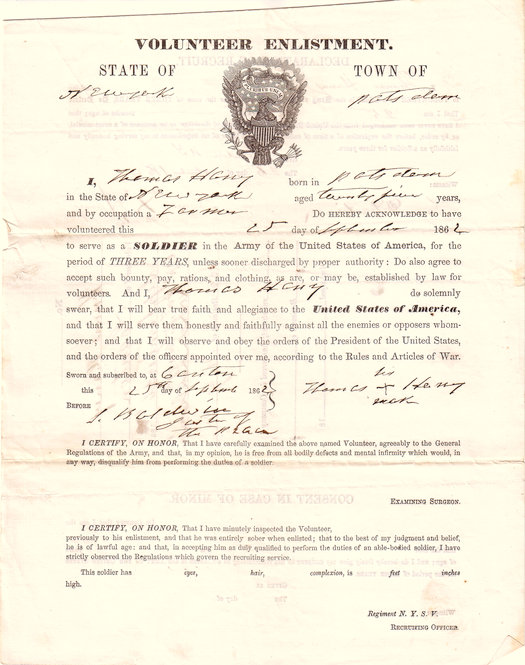 VOLUNTEER ENLISTMENT.
STATE OF TOWN OF
New york potsdam
I, Thomas Henry born in potsdam
in the State of New york aged twenty five years,
and by occupation a Farmer Do HEREBY ACKNOWLEDGE to have
volunteered this 25 day of September 1862
to serve as a SOLDIER in the Army of the United States of America, for the
period of THREE YEARS, unless sooner discharged by proper authority: Do also agree to
accept such bounty, pay, rations, and clothing, as are, or may be, established by law for
volunteers. And I, Thomas Henry do solemnly
swear, that I will bear true faith and allegiance to the United States of America,
and that I will serve them honestly and faithfully against all the enemies or opposers whom-
soever; and that I will observe and obey the orders of the President of the United States,
and the orders of the officers appointed over me, according to the Rules and Articles of War.
Sworn and subscribed to, at Canton his
this 25th day of Septemb 1862 Thomas x Henry
mark
BEFORE S. Baldwin
Justice of
the Peace
I CERTIFY, ON HONOR, That I have carefully examined the above named Volunteer, agreeably to the General
Regulations of the Army, and that, in my opinion, he is free from all bodily defects and mental infirmity which would, in
any way, disqualify him from performing the duties of a soldier.
EXAMINING SURGEON.
I CERTIFY, ON HONOR, That I have minutely inspected the Volunteer,
previously to his enlistment, and that he was entirely sober when enlisted; that to the best of my judgment and belief,
he is of lawful age: and that, in accepting him as duly qualified to perform the duties of an able-bodied soldier, I have
strictly observed the Regulations which govern the recruiting service.
This soldier has eyes, hair, complexion, is feet inches
high.
Regiment N. Y. S. V.
RECRUITING OFFICER.